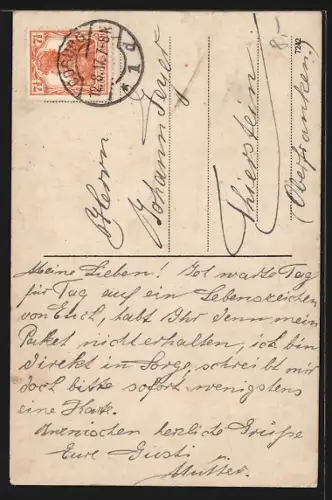 7½ 7½
COBURG
12.8.17. 7-8 N
* 1 d
8.-
7242
Herrn
Johann Geyer
Thierstein
(Oberfranken)
Meine Lieben! Ich warte Tag
für Tag auf ein Lebenszeichen
von Euch, habt Ihr denn mein
Paket nicht erhalten, ich bin
direkt in Sorge, schreibt mir
doch bitte sofort wenigstens
eine Karte.
Inzwischen herzliche Grüsse
Eure Gusti
Mutter.